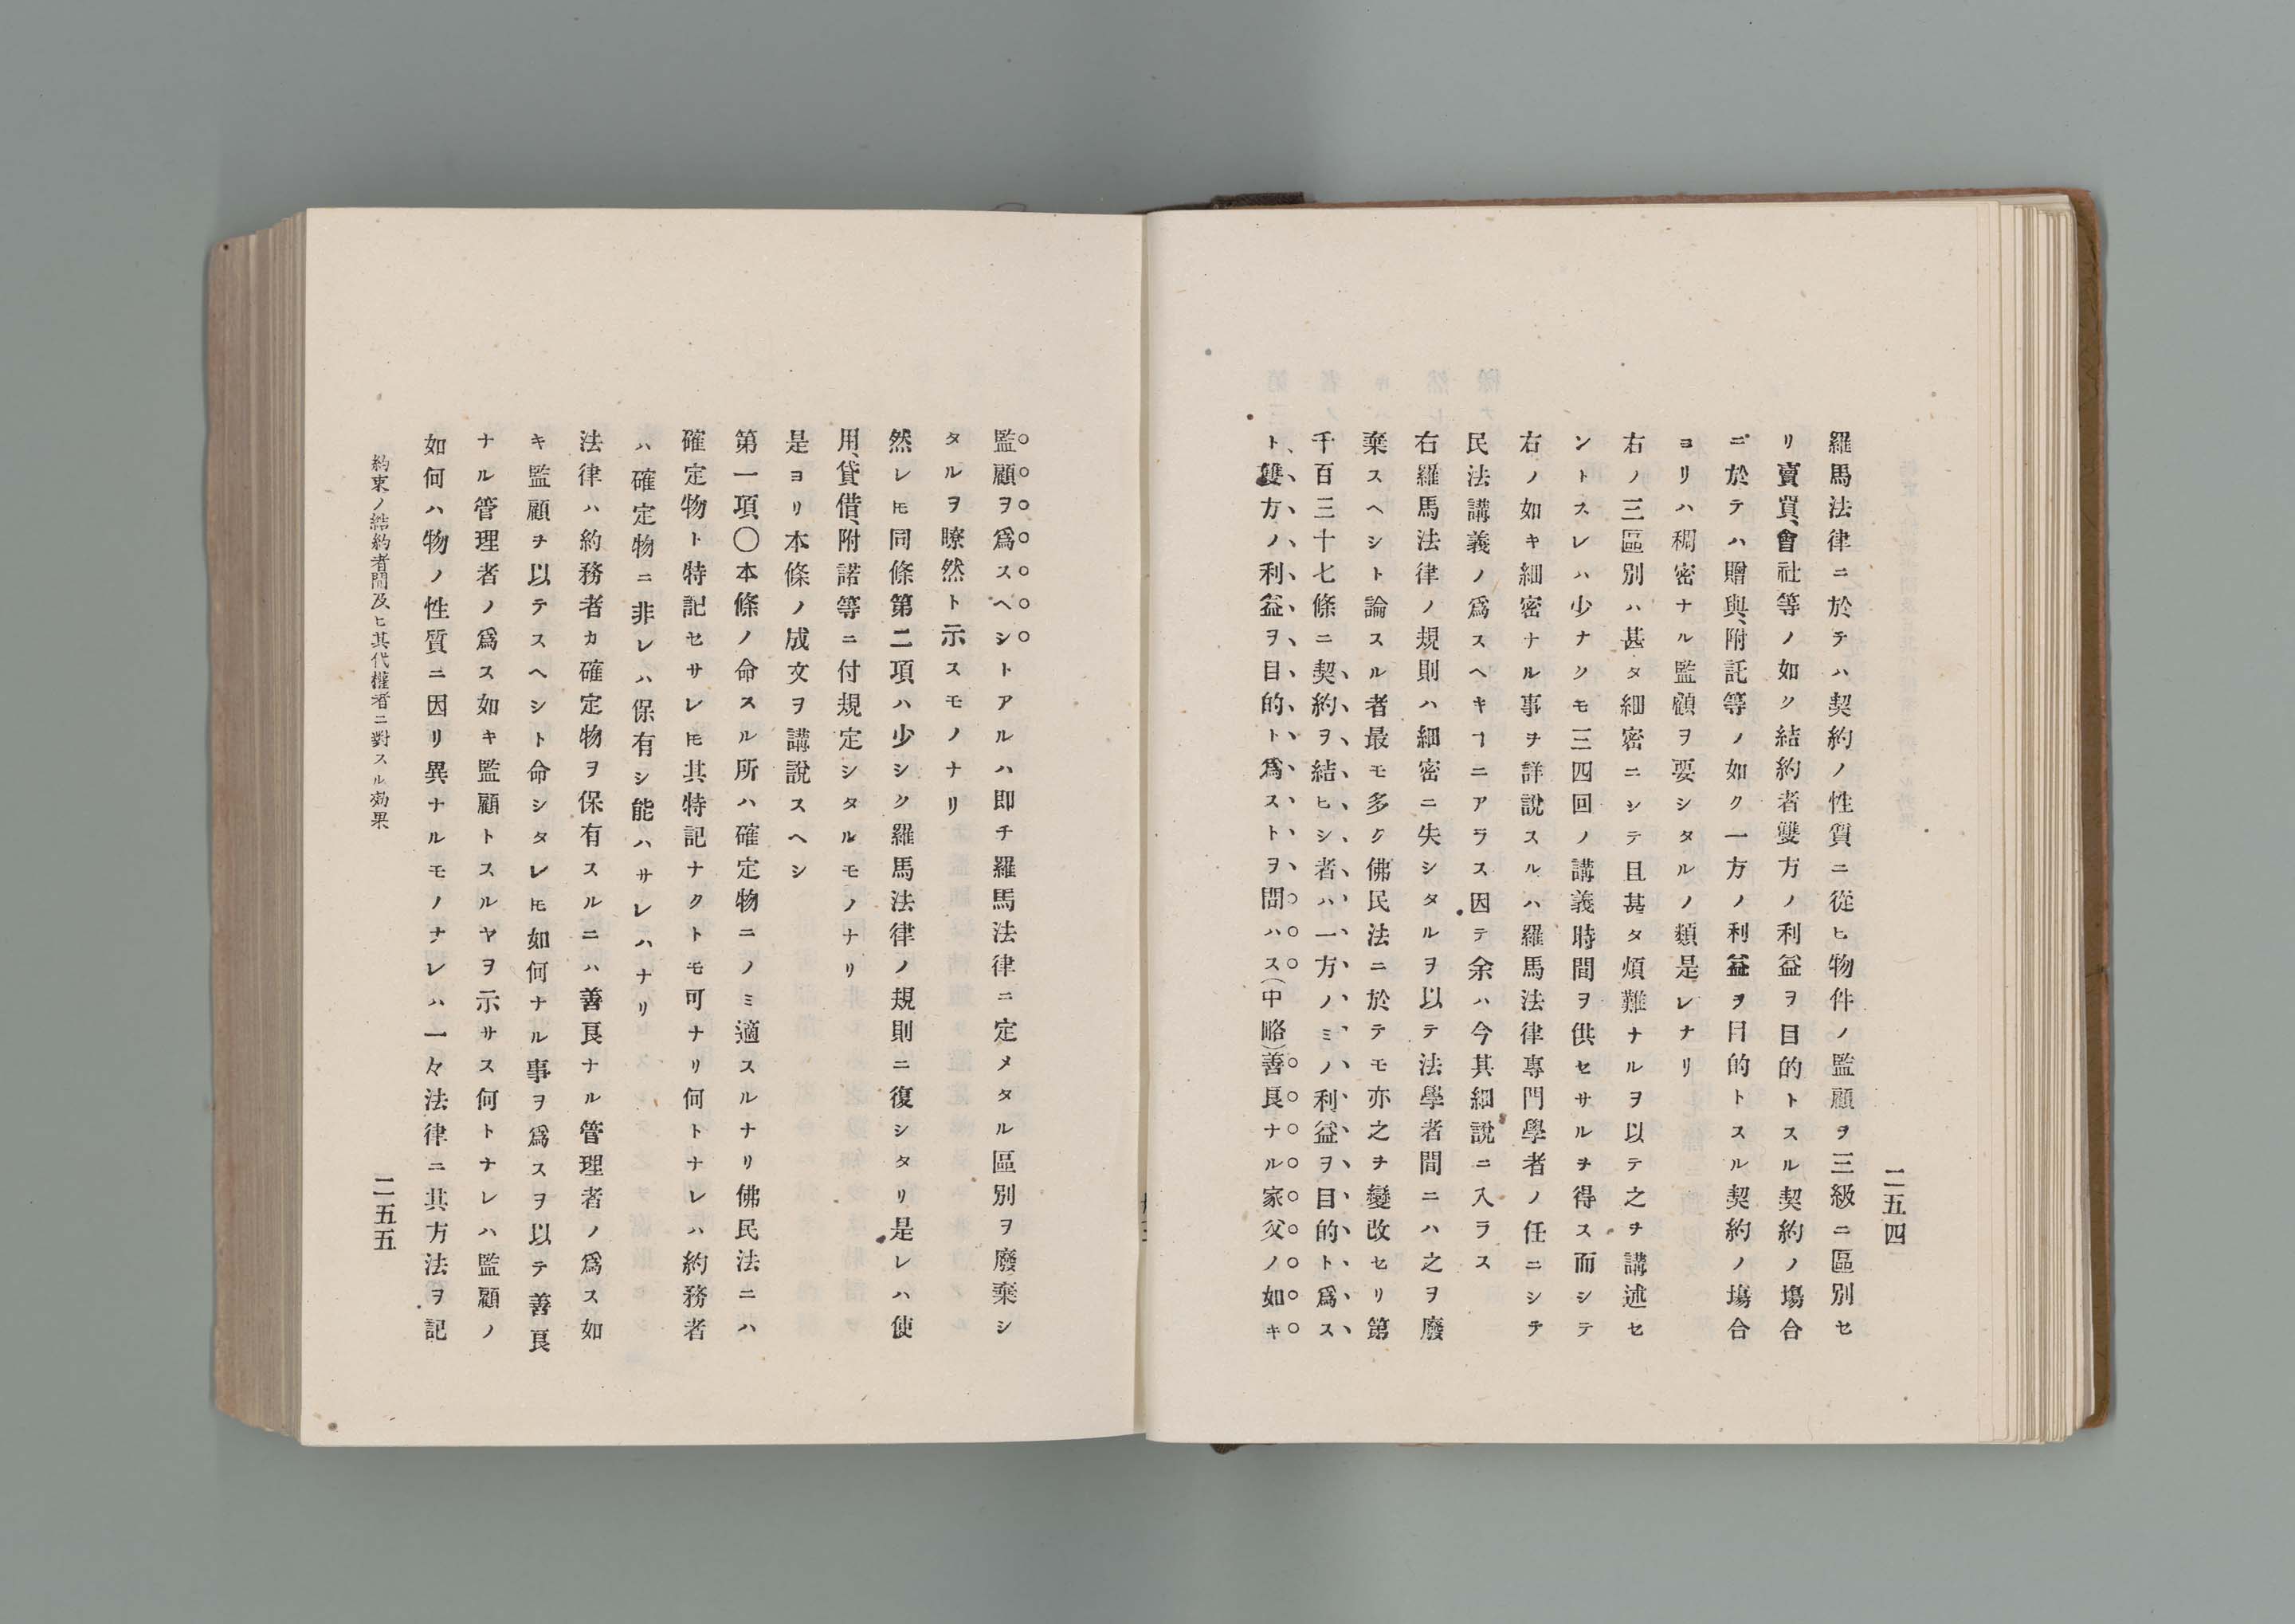 二五四
羅馬法律ニ於テハ契約ノ性質ニ從ヒ物件ノ監顧ヲ三級ニ區別セ
リ賣買、會社等ノ如ク結約者雙方ノ利益ヲ目的トスル契約ノ塲合
ニ於テハ贈與、附託等ノ如ク一方ノ利益ヲ目的トスル契約ノ塲合
ヨリハ稠密ナル監顧ヲ要シタルノ類是レナリ
右ノ三區別ハ甚タ細密ニシテ且甚タ煩難ナルヲ以テ之ヲ講述セ
ントスレハ少ナクモ三四回ノ講義時間ヲ供セサルヲ得ス而シテ
右ノ如キ細密ナル事ヲ詳説スルハ羅馬法律專門學者ノ任ニシテ
民法講義ノ爲スヘキヿニアラス因テ余ハ今其細説ニ入ラス
右羅馬法律ノ規則ハ細密ニ失シタルヲ以テ法學者間ニハ之ヲ廢
棄スヘシト論スル者最モ多ク佛民法ニ於テモ亦之ヲ變改セリ第
千百三十七條ニ契約ヲ結ヒシ者ハ一方ノミノ利益ヲ目的ト爲ス
ト雙方ノ利益ヲ目的ト爲ストヲ問ハス(中略)善良ナル家父ノ如キ
監顧ヲ爲スヘシトアルハ即チ羅馬法律ニ定メタル區別ヲ廢棄シ
タルヲ瞭然ト示スモノナリ
然レ𪜈同條第二項ハ少シク羅馬法律ノ規則ニ復シタリ是レハ使
用、貸借、附諾等ニ付規定シタルモノナリ
是ヨリ本條ノ成文ヲ講説スヘシ
第一項〇本條ノ命スル所ハ確定物ニノミ適スルナリ佛民法ニハ
確定物ト特記セサレ𪜈其特記ナクトモ可ナリ何トナレハ約務者
ハ確定物ニ非レハ保有シ能ハサレハナリ
法律ハ約務者カ確定物ヲ保有スルニハ善良ナル管理者ノ爲ス如
キ監顧ヲ以テスヘシト命シタレ𪜈如何ナル事ヲ爲スヲ以テ善良
ナル管理者ノ爲ス如キ監顧トスルヤヲ示サス何トナレハ監顧ノ
如何ハ物ノ性質ニ因リ異ナルモノナレハ一々法律ニ其方法ヲ記
約束ノ結約者間及ヒ其代權者ニ對スル効果
二五五